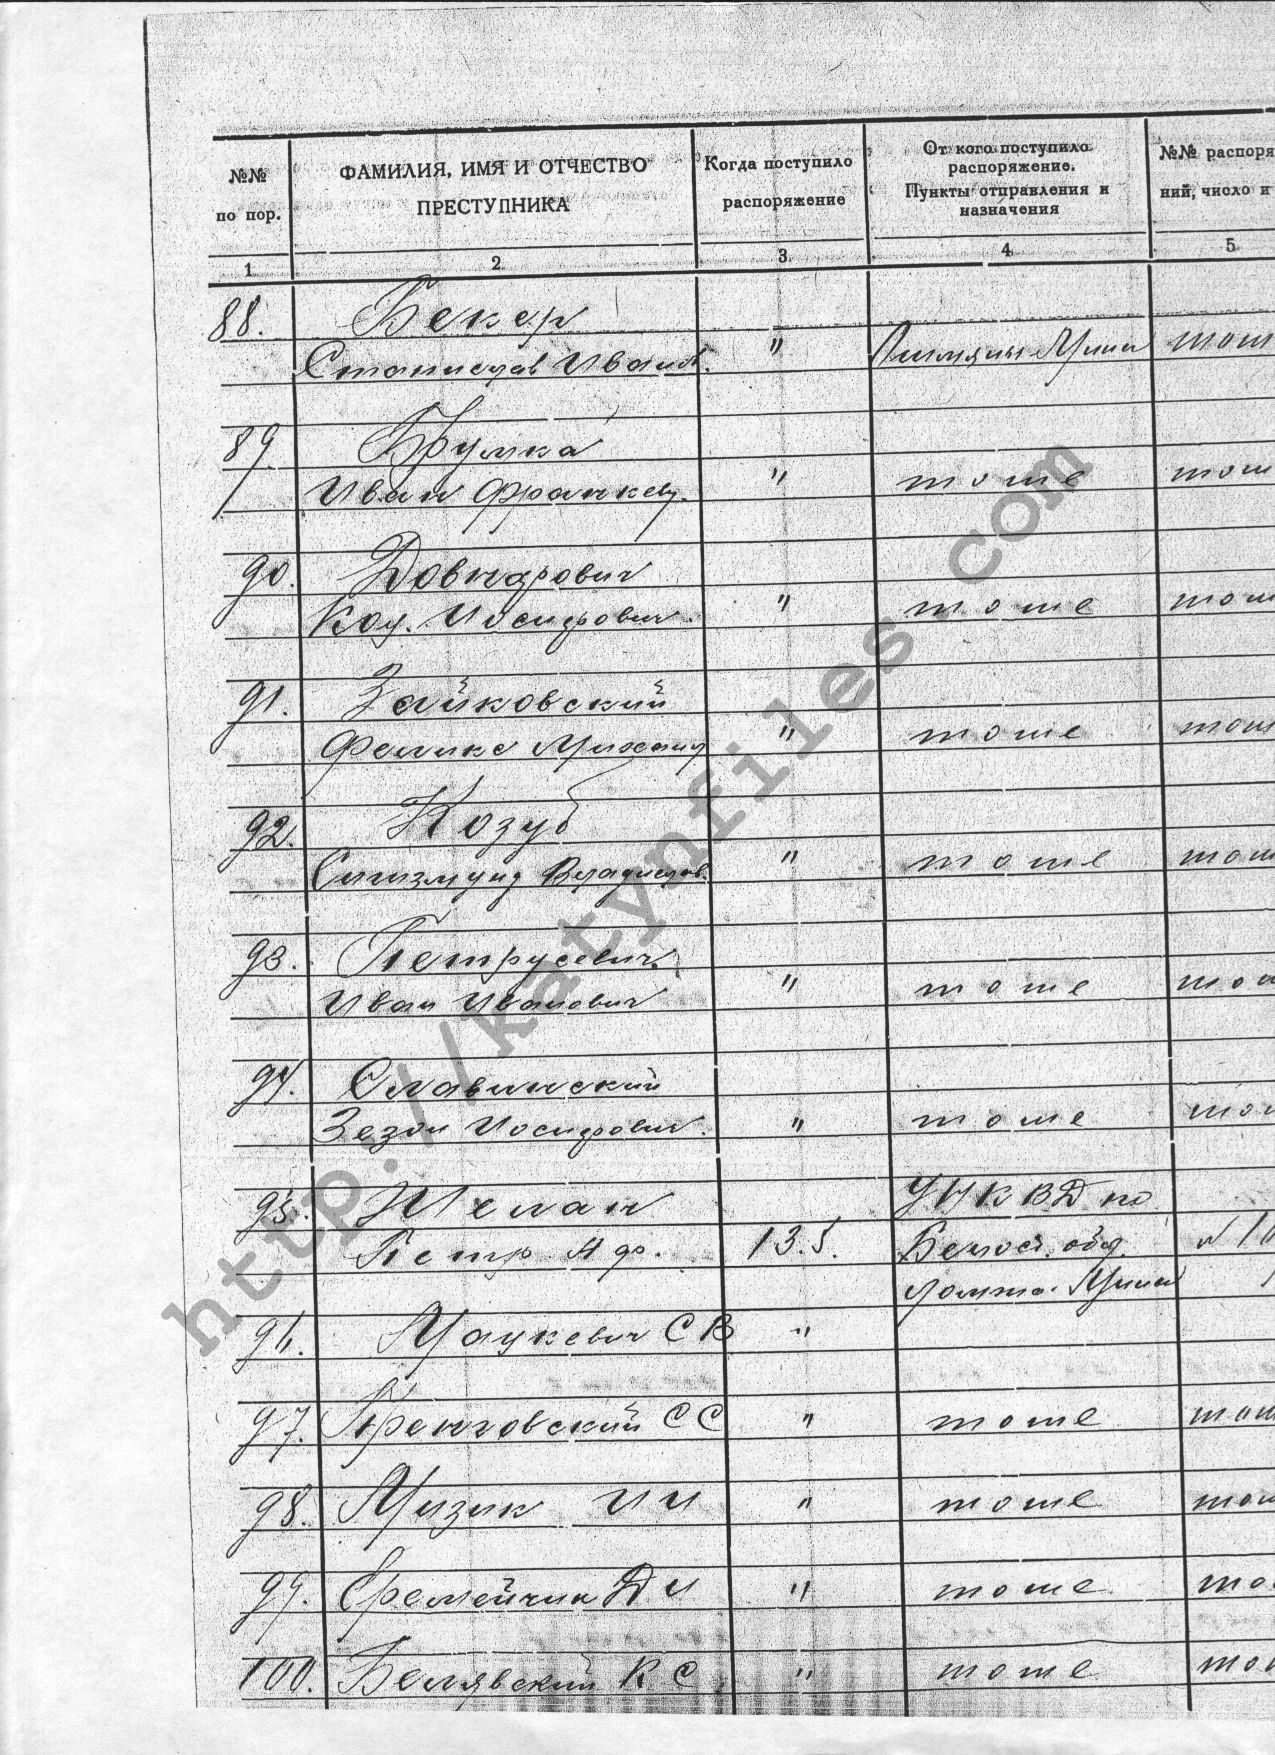 №№ по пор.
ФАМИЛИЯ, ИМЯ И ОТЧЕСТВО ПРЕСТУПНИКА
Когда поступило распоряжение
От кого поступило распоряжение. Пункты отправления и назначения
№№ распоря
ний, число и
1 2 3 4 5
88. Бекер
Станислав Иванов. " Минск тош
89 Брумка
Иван Франкев. " тоше тош
90. Довнарович
Каз. Иосифович. " тоше тош
91. Зайковский
Феликс Михаил " тоше тош
92. Козуб
Сигизмунд Владислов. " тоше тош
93. Петрусевич
Иван Иванович " тоше тош
94. Славинский
Зезон Иосифович. " тоше тош
95. Шелан УНКВД по
Петр Аф. 13.5. Белост. обл. № 10
Ломжа. Минск
96. Мацкевич СВ "
97. Кренговский СС " тоше тош
98. Мизик ИИ " тоше тош
99. Еремейчик ДИ " тоше то
100. Белявский КС " тоше тош
http://katynfiles.com